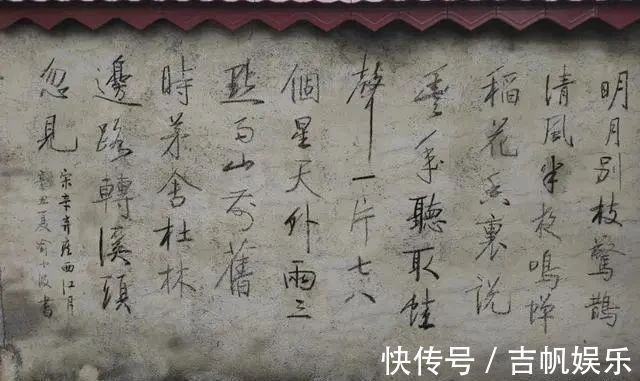 明月别枝驚鵲
清風半夜鳴蟬
稻花香裏説
豐年聽取蛙
聲一片七八
個星天外兩三
點雨山前舊
時茅舍社林
邊路轉溪頭
忽見
宋辛弃疾西江月
辛丑夏俞小波書
快传号 / 吉帆娱乐